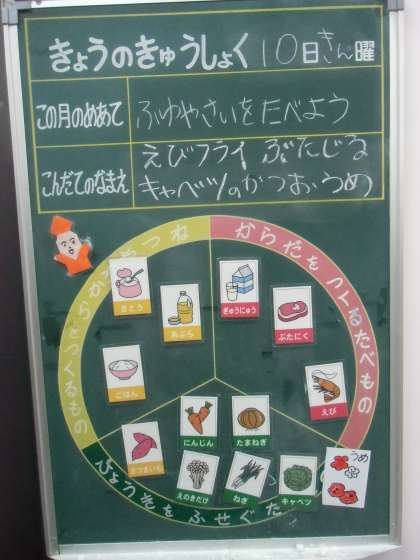 きょうのきゅうしょく 10日きん曜
この月のめあて ふゆやさいをたべよう
こんだてのなまえ えびフライ ぶたじる
キャベツのかつおうめ
からだをつくるたべもの
さとう
あぶら
ぎゅうにゅう
ぶたにく
ごはん
えび
にんじん
たまねぎ
さつまいも
えのきだけ
ねぎ
キャベツ
うめ
びょうきをふせぐた